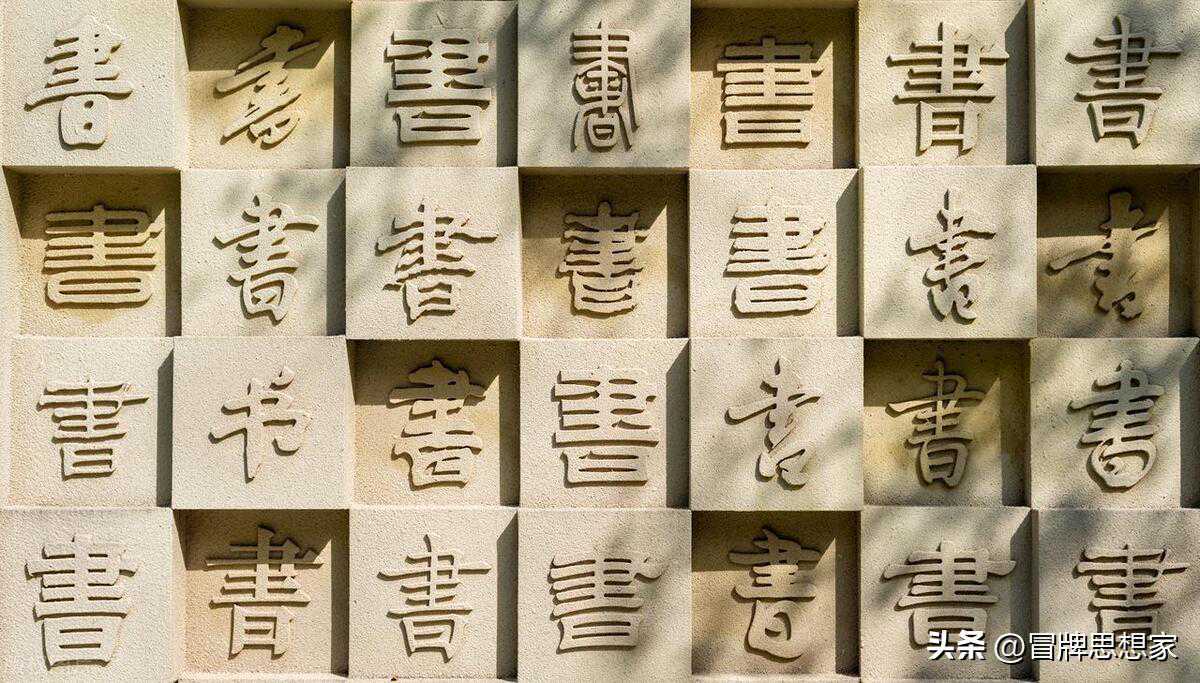 書書書書書書書
書書書書書書書
書书書書書書書
書書書書書書書
头条 @冒牌思想家